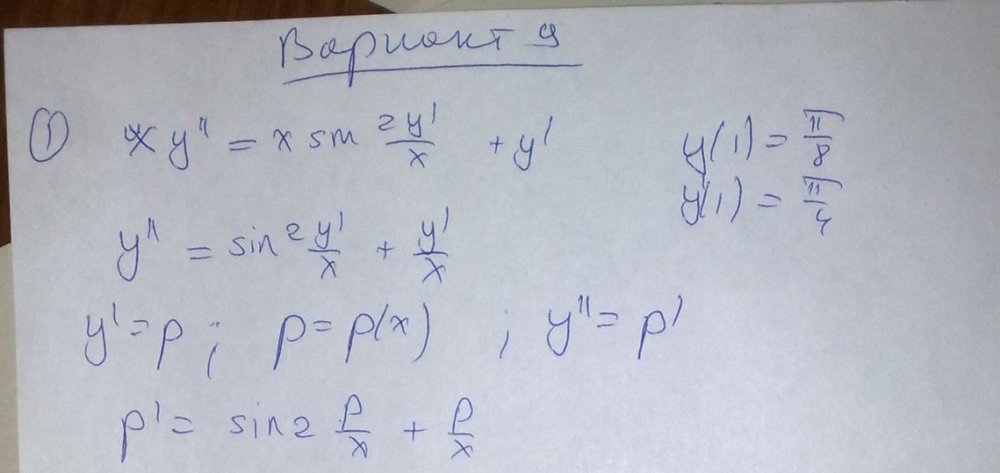 Вариант 9
① x y'' = x sin 2y'/x + y' y(1) = π/8
y(1) = π/4
y'' = sin 2 y'/x + y'/x
y' = p ; p = p(x) ; y'' = p'
p' = sin 2 p/x + p/x